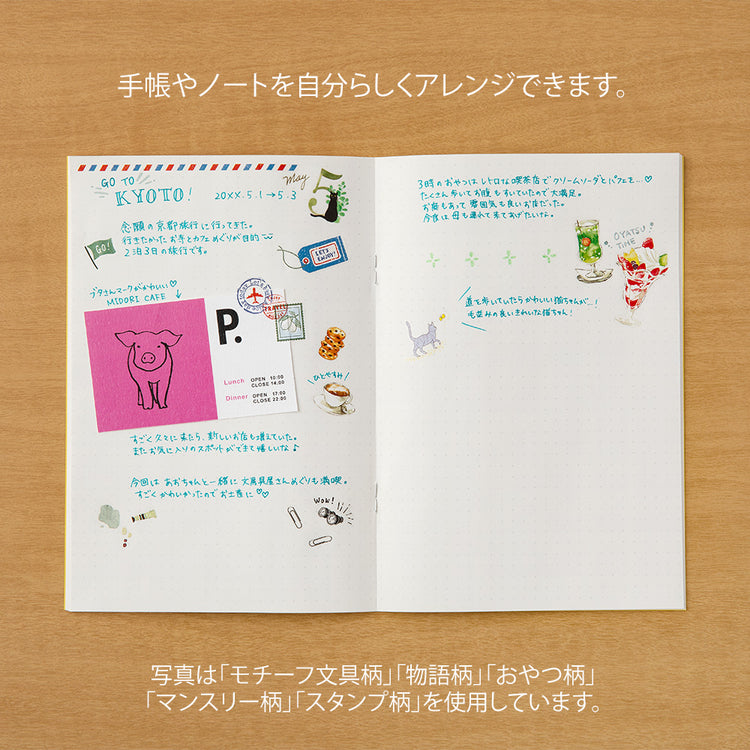 手帳やノートを自分らしくアレンジできます。
GO TO
KYOTO!
20XX.5.1→5.3
May
5
念願の京都旅行に行ってきた。
行きたかったお寺とカフェめぐりが目的
2泊3日の旅行です。
GO!
LET'S
ENJOY!
ブタさんマークがかわいい♡
MIDORI CAFE
P.
Lunch OPEN 10:00
CLOSE 14:00
Dinner OPEN 17:00
CLOSE 22:00
TRAVEL
ひとやすみ
すごく久々に来たら、新しいお店も増えていた。
またお気に入りのスポットができて嬉しいな♪
今回は あおちゃんと一緒に 文房具屋さんめぐりも満喫。
すごくかわいかったのでお土産に♡♡
Wow!
3時のおやつは レトロな喫茶店でクリームソーダとパフェを…♡
たくさん歩いてお腹もすいていたので大満足。
お庭もあって 雰囲気も良いお店だった。
今度は 母も連れて来てあげたいな。
OYATSU
TIME
道を歩いていたらかわいい猫ちゃんが…!
毛並みの良いきれいな猫ちゃん!
写真は「モチーフ文具柄」「物語柄」「おやつ柄」
「マンスリー柄」「スタンプ柄」を使用しています。